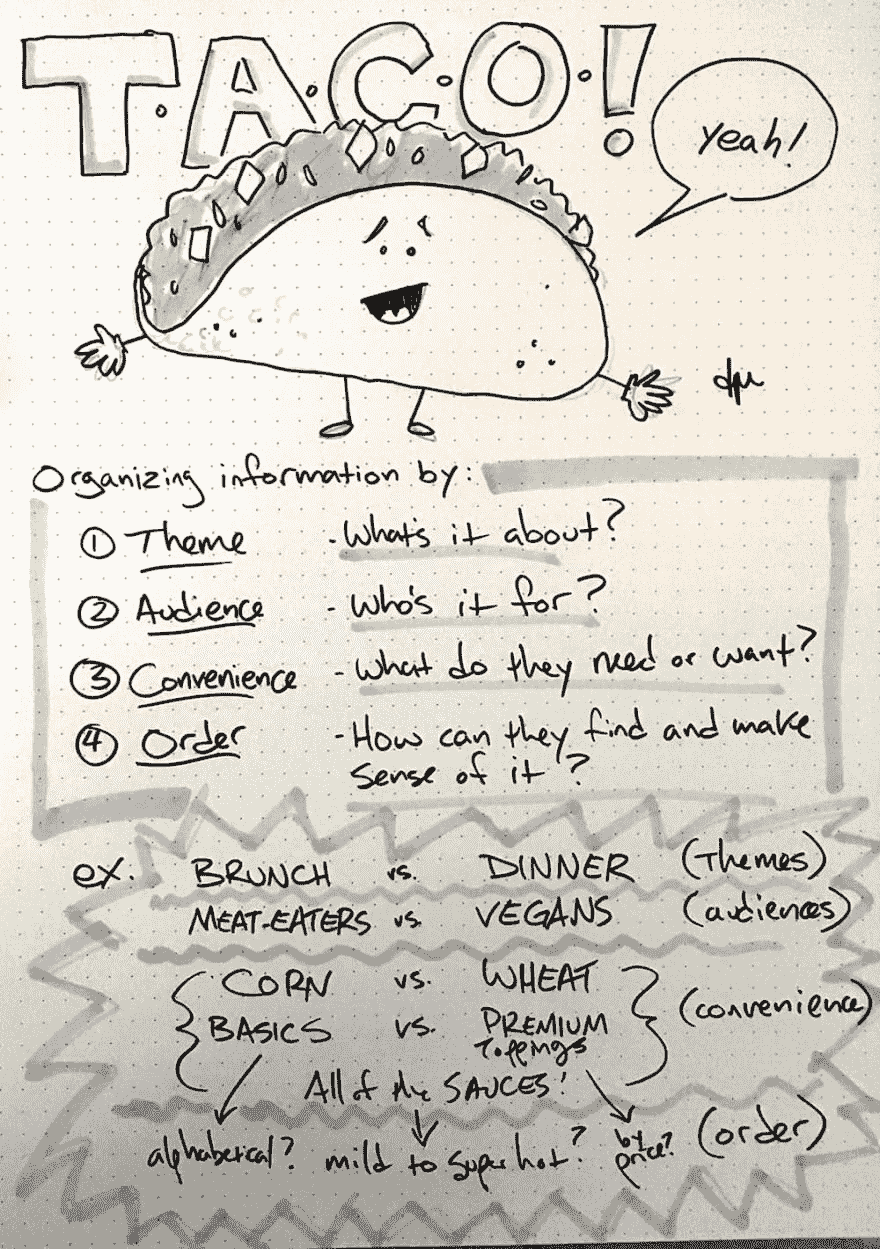 T.A.C.O!
yeah!
dpu
Organizing information by:
① Theme - What's it about?
② Audience - Who's it for?
③ Convenience - What do they need or want?
④ Order - How can they find and make
sense of it?
ex. BRUNCH vs. DINNER (Themes)
MEAT-EATERS vs. VEGANS (audiences)
CORN vs. WHEAT
BASICS vs. PREMIUM
Toppings
(convenience)
All of the SAUCES!
alphabetical? mild to super hot? by
price? (order)